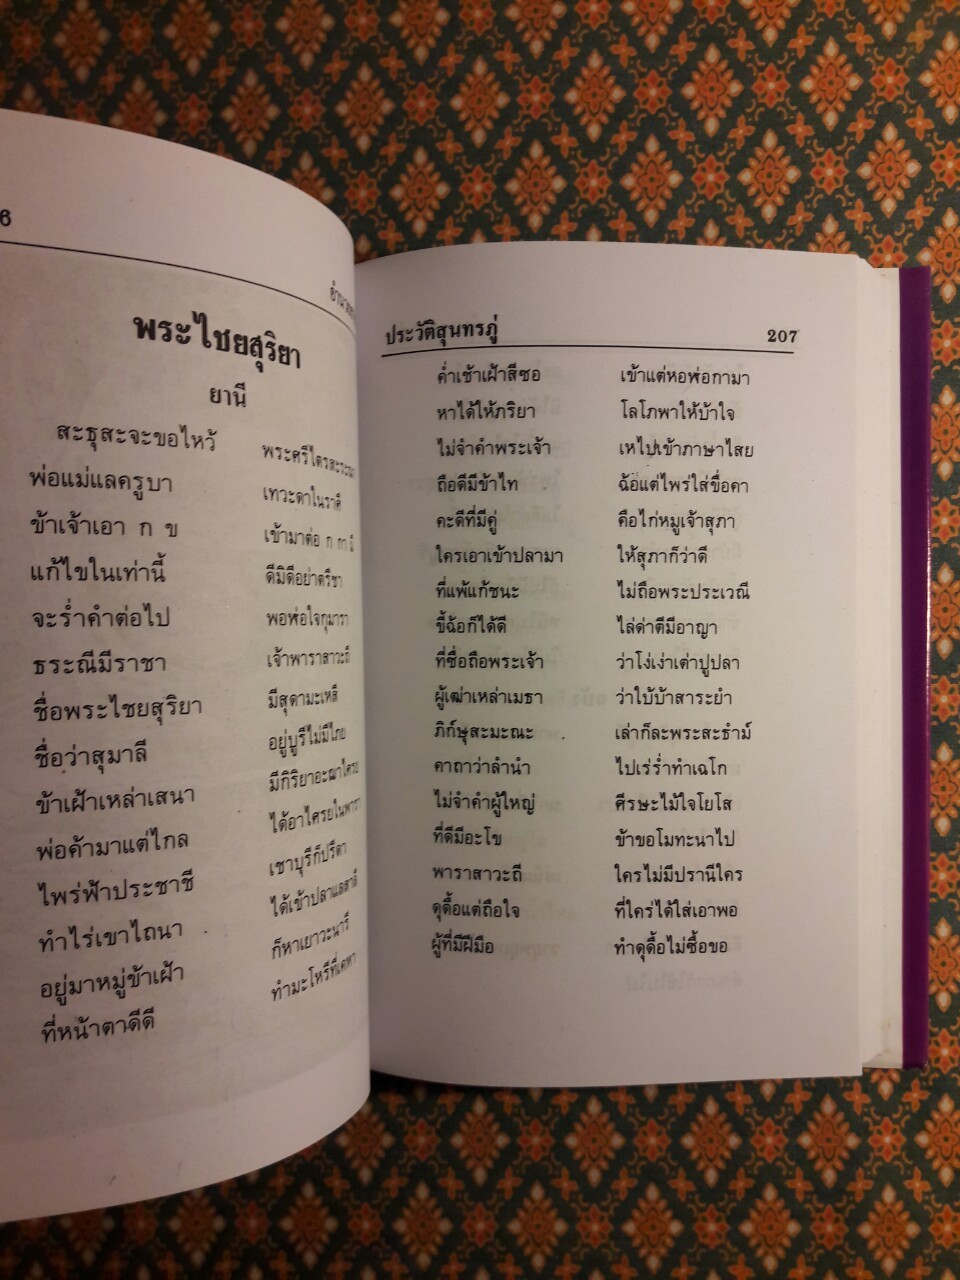 6
พระไชยสุริยา
ยานี
สะธุสะจะขอไหว้ พระศรีไตรสะระณา
พ่อแม่แลครูบา เทวะดาในราศี
ข้าเจ้าเอา ก ข เข้ามาต่อ ก กา มี
แก้ไขในเท่านี้ ดีมิดีอย่าตรีชา
จะร่ำคำต่อไป พอห่อใจกุมารา
ธระณีมีราชา เจ้าพาราสาวะถี
ชื่อพระไชยสุริยา มีสุดามะเหสี
ชื่อว่าสุมาลี อยู่บูรีไม่มีไภย
ข้าเฝ้าเหล่าเสนา มีกิริยาอะฌาไศรย
พ่อค้ามาแต่ไกล ได้อาไศรยในพารา
ไพร่ฟ้าประชาชี เชาบุรีก็ปรีดา
ทำไร่เขาไถนา ได้เข้าปลาแลสาลี
อยู่มาหมู่ข้าเฝ้า ก็หาเยาวะนารี
ที่หน้าตาดีดี ทำมะโหรีที่เคหา
ประวัติสุนทรภู่ 207
ค่ำเช้าเฝ้าสีซอ เข้าแต่หอห่อกามา
หาได้ให้ภริยา โลโภพาให้บ้าใจ
ไม่จำคำพระเจ้า เหไปเข้าภาษาไสย
ถือดีมีข้าไท ฉ้อแต่ไพร่ใส่ขื่อคา
คะดีที่มีคู่ คือไก่หมูเจ้าสุภา
ใครเอาเข้าปลามา ให้สุภาก็ว่าดี
ที่แพ้แก้ชนะ ไม่ถือพระประเวณี
ขี้ฉ้อก็ได้ดี ไล่ด่าตีมีอาญา
ที่ซื่อถือพระเจ้า ว่าโง่เง่าเต่าปูปลา
ผู้เฒ่าเหล่าเมธา ว่าใบ้บ้าสาระยำ
ภิก์ษุสะมะณะ เล่าก็ละพระสะธำม์
คาถาว่าลำนำ ไปเร่ร่ำทำเฉโก
ไม่จำคำผู้ใหญ่ ศีรษะไม้ใจโยโส
ที่ดีมีอะโข ข้าขอโมทะนาไป
พาราสาวะถี ใครไม่มีปรานีใคร
ดุดื้อแต่ถือใจ ที่ใคร่ได้ใส่เอาพอ
ผู้ที่มีฝีมือ ทำดุดื้อไม่ซื้อขอ